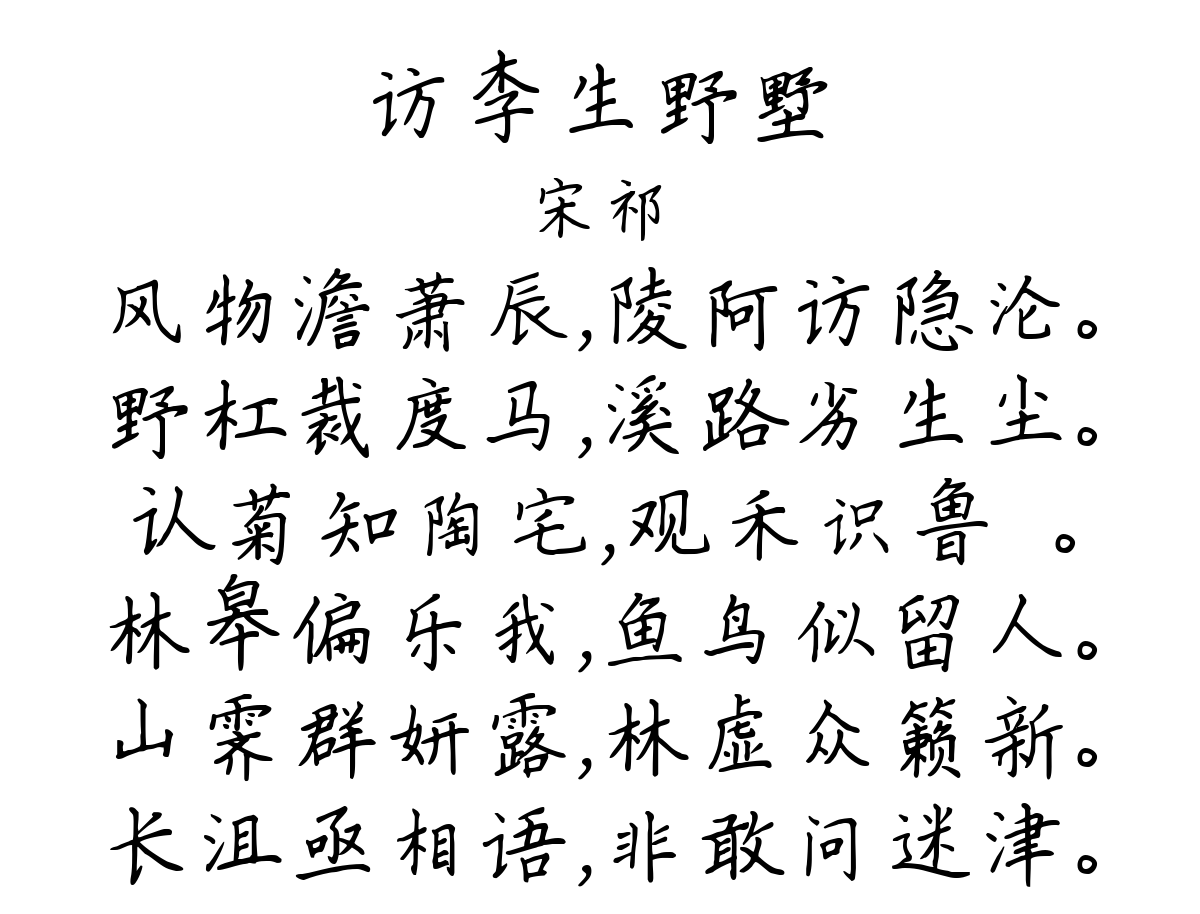 访李生野墅
宋祁
风物澹萧辰,陵阿访隐沦。
野杠裁度马,溪路劣生尘。
认菊知陶宅,观禾识鲁 。
林皋偏乐我,鱼鸟似留人。
山霁群妍露,林虚众籁新。
长沮亟相语,非敢问迷津。